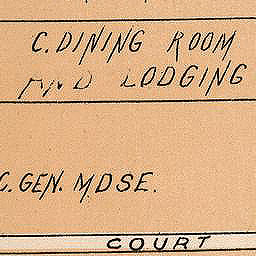 C. DINING ROOM
AND LODGING
C. GEN. MDSE.
COURT